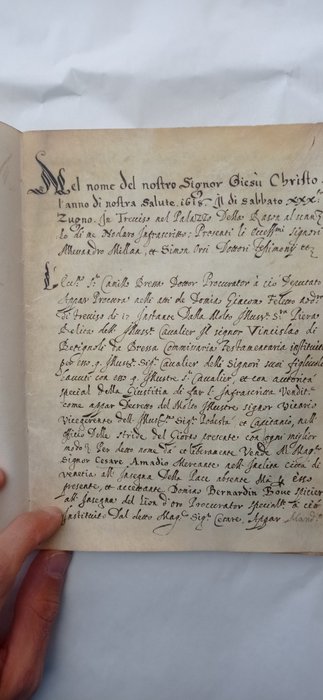 Nel nome del nostro Signor Giesù Christo.
l'anno di nostra salute. 1618. Il dì Sabbato XXX.
Zugno. In Treviso nel Palazzo della Rason al
lo di me Nodaro infrascritto: Presenti li Eccell.mi signori
Alessandro Millan, et Simon Dottori Testimonij etc.
L'Ecc.te S.r Camillo Dottor Procurator à ciò Deputato
Appar Procura nelli atti de Domino Giacomo nod.o
di Treviso di 17 Instante Dalla Molto Illustr.e Sig.ra
dell' Illustr. Cavalier Il signor Vincislao di
da Bressa Commissaria Testamentaria instituita
per esso q. Illustr. Sig.r Cavalier delli Signori suoi figliuoli
con esso q. Illustre S.r Cavalier, et con autorità
special della Giustitia di far l' Infrascritta Vendita
come appar Decreto del Molto Illustre signor Vicario
Vicegerente dell' Illustriss. Sig.r Podestà et Capitanio, nell'
officio delle stride del Giorno presente con ogni miglior
modo per detto nome dà et liberamente Vende Al Mag.co
Signor Cesare Amadio Mercante nell' Inclita città di
Venetia all' Insegna Della Pace absente Mà p esso
presente, et accettante Domino Bernardin
all' Insegna del Lion d'oro Procurator à ciò
Instituito Dal detto Mag.co Sig.r Cesare, Appar